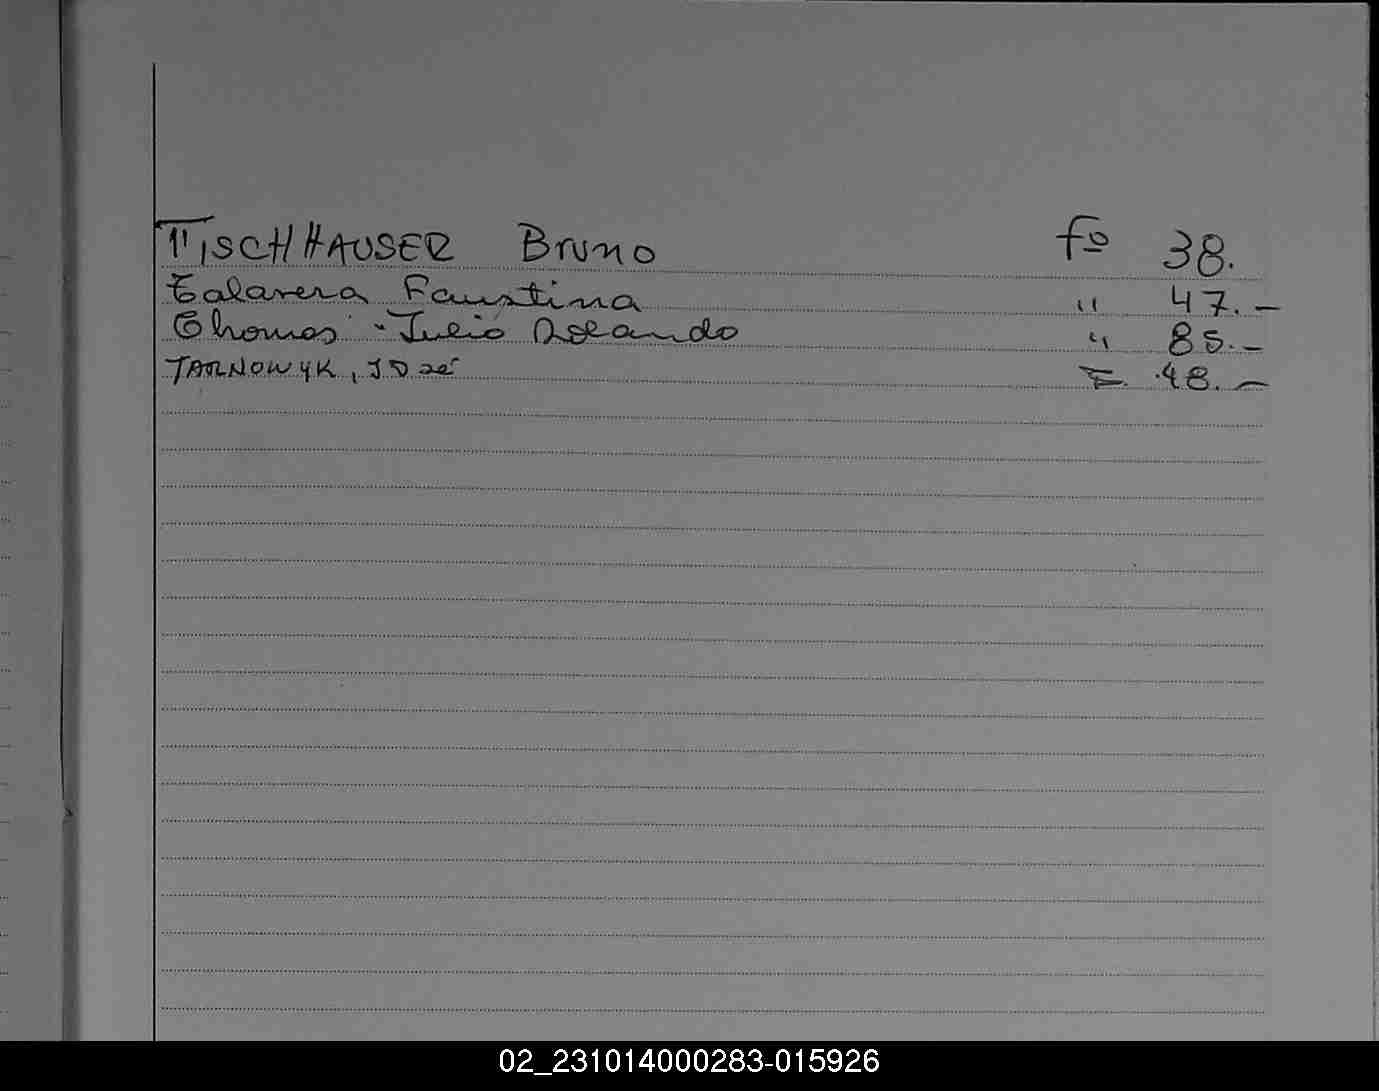 TISCHHAUSER Bruno fº 38.
Talavera Faustina " 47.-
Thomas - Julio Rolando " 85.-
TARNOWYK, José F. 48.-
02_231014000283-015926